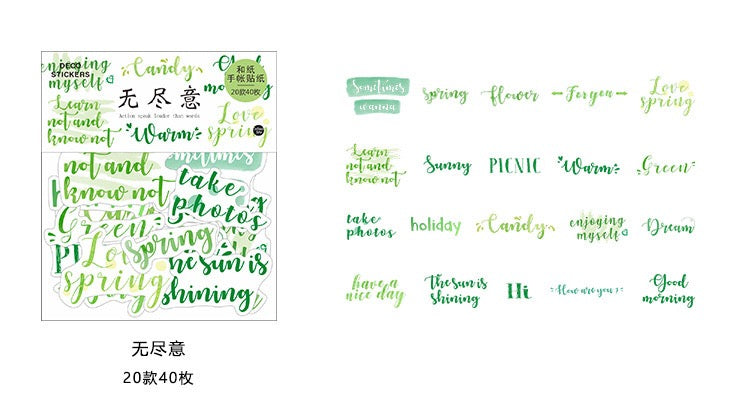 DECO
STICKERS
enjoying
myself
Candy
Good
和纸
手帐贴纸
20款40枚
无尽意
Action speak louder than words
Learn
not and
know not
Warm
Love
spring
not and
know not
sometimes
take
photos
Green
Love
spring
spring
the sun is
shining
无尽意
20款40枚
Sometimes
wanna
spring
flower
For you
Love
spring
Learn
not and
know not
Sunny
PICNIC
Warm
Green
take
photos
holiday
Candy
enjoying
myself
Dream
have a
nice day
The sun is
shining
Hi
How are you?
Good
morning